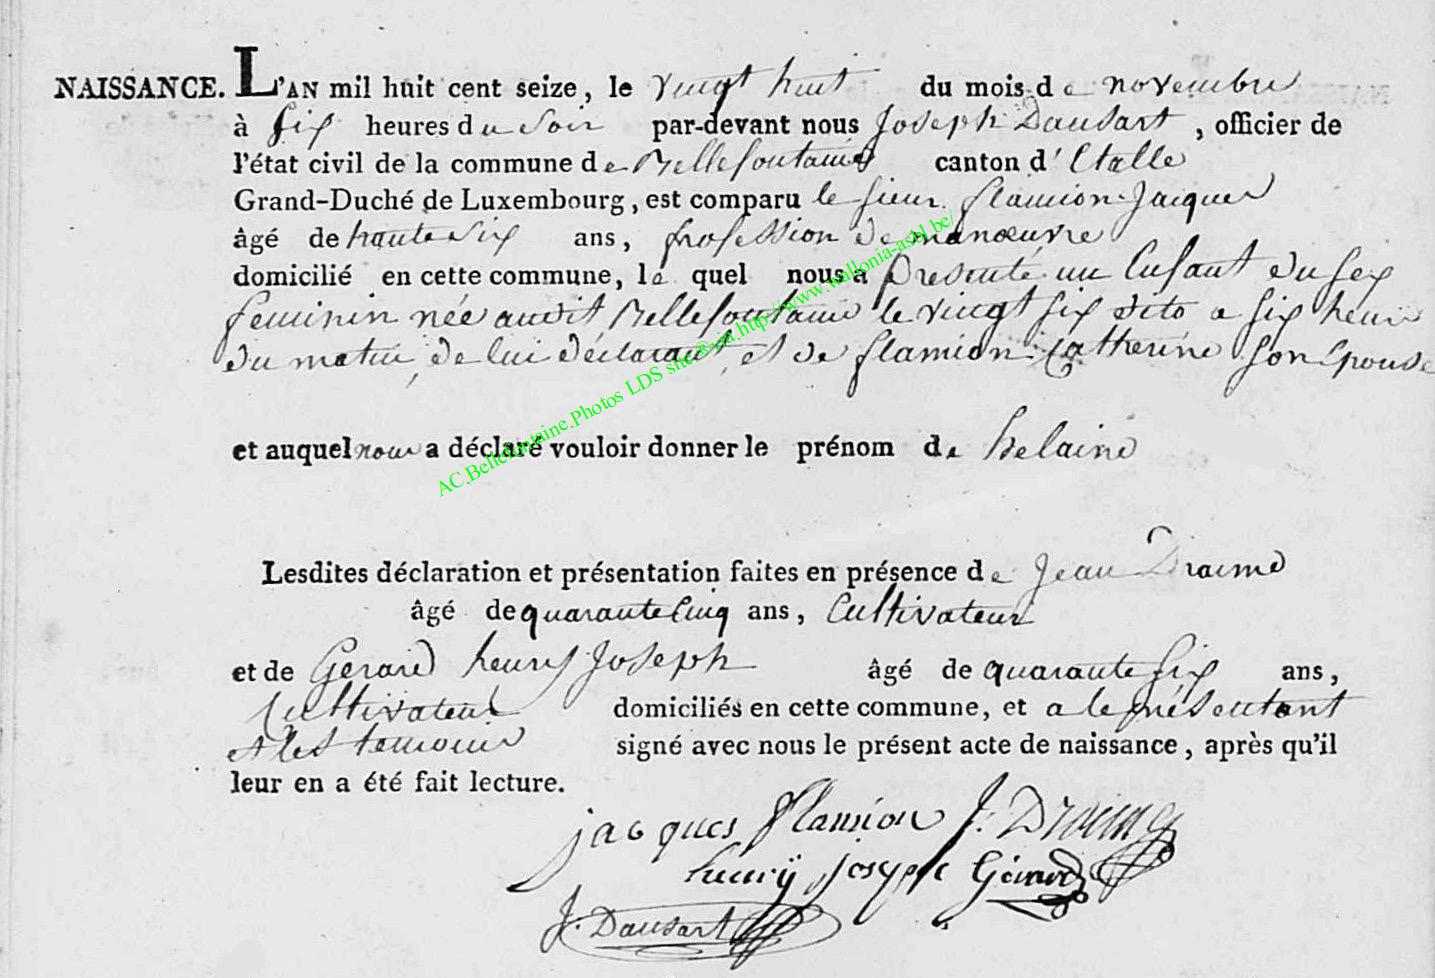 NAISSANCE. L'AN mil huit cent seize, le vingt huit du mois de novembre
à six heures du soir par-devant nous Joseph Dausart, officier de
l'état civil de la commune de Bellefontaine canton d'Etalle
Grand-Duché de Luxembourg, est comparu le sieur flamion Jacques
âgé de trente six ans, profession de manœuvre
domicilié en cette commune, le quel nous a presenté un Enfant du sex
feminin née audit Bellefontaine le vingt six dito a six heure
du matin, de lui déclarant, et de flamion Catherine son Epouse
et auquel nous a déclaré vouloir donner le prénom de helaine
Lesdites déclaration et présentation faites en présence de Jean Draime
âgé de quarante Cinq ans, Cultivateur
et de Gerard henry Joseph âgé de quarante six ans,
Cultivateur domiciliés en cette commune, et a le présentant
et les temoins signé avec nous le présent acte de naissance, après qu'il
leur en a été fait lecture.
jacques flamion J. Draime
henrÿ joseph Gérard
J. Dausart
AC.Bellefontaine.Photos LDS site http://www.wallonia-asbl.be/